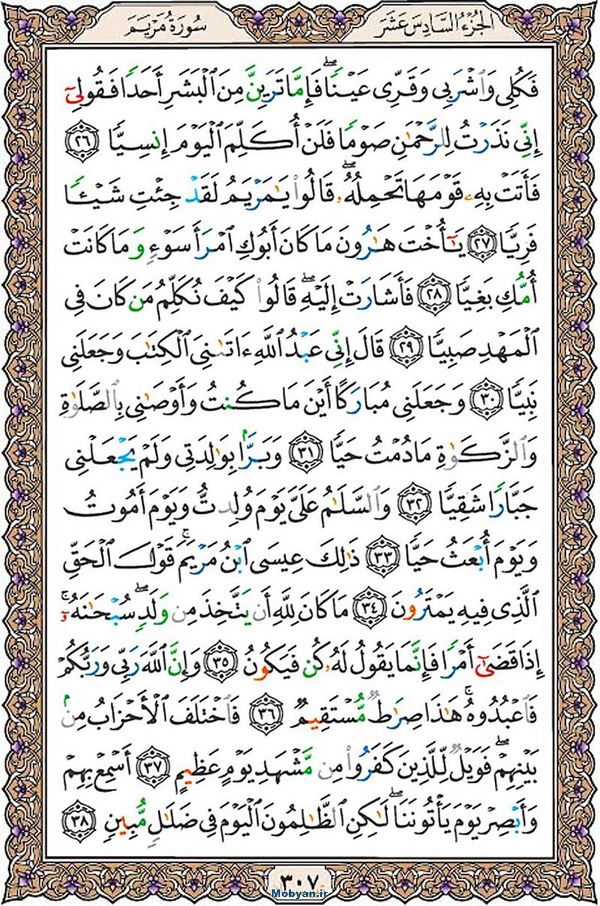 الجزء السادس عشر
سورة مريم
فَكُلِي وَاشْرَبِي وَقَرِّي عَيْنًا ۖ فَإِمَّا تَرَيِنَّ مِنَ الْبَشَرِ أَحَدًا فَقُولِي
إِنِّي نَذَرْتُ لِلرَّحْمَٰنِ صَوْمًا فَلَنْ أُكَلِّمَ الْيَوْمَ إِنسِيًّا ٢٦
فَأَتَتْ بِهِ قَوْمَهَا تَحْمِلُهُ ۖ قَالُوا يَا مَرْيَمُ لَقَدْ جِئْتِ شَيْئًا
فَرِيًّا ٢٧ يَا أُخْتَ هَارُونَ مَا كَانَ أَبُوكِ امْرَأَ سَوْءٍ وَمَا كَانَتْ
أُمُّكِ بَغِيًّا ٢٨ فَأَشَارَتْ إِلَيْهِ ۖ قَالُوا كَيْفَ نُكَلِّمُ مَن كَانَ فِي
الْمَهْدِ صَبِيًّا ٢٩ قَالَ إِنِّي عَبْدُ اللَّهِ ءَاتَانِيَ الْكِتَابَ وَجَعَلَنِي
نَبِيًّا ٣٠ وَجَعَلَنِي مُبَارَكًا أَيْنَ مَا كُنتُ وَأَوْصَانِي بِالصَّلَوٰةِ
وَالزَّكَوٰةِ مَا دُمْتُ حَيًّا ٣١ وَبَرًّا بِوَالِدَتِي وَلَمْ يَجْعَلْنِي
جَبَّارًا شَقِيًّا ٣٢ وَالسَّلَامُ عَلَيَّ يَوْمَ وُلِدتُّ وَيَوْمَ أَمُوتُ
وَيَوْمَ أُبْعَثُ حَيًّا ٣٣ ذَٰلِكَ عِيسَى ابْنُ مَرْيَمَ ۚ قَوْلَ الْحَقِّ
الَّذِي فِيهِ يَمْتَرُونَ ٣٤ مَا كَانَ لِلَّهِ أَن يَتَّخِذَ مِن وَلَدٍ ۖ سُبْحَانَهُ ۚ
إِذَا قَضَىٰ أَمْرًا فَإِنَّمَا يَقُولُ لَهُ كُن فَيَكُونُ ٣٥ وَإِنَّ اللَّهَ رَبِّي وَرَبُّكُمْ
فَاعْبُدُوهُ ۚ هَٰذَا صِرَاطٌ مُّسْتَقِيمٌ ٣٦ فَاخْتَلَفَ الْأَحْزَابُ مِن
بَيْنِهِمْ ۖ فَوَيْلٌ لِّلَّذِينَ كَفَرُوا مِن مَّشْهَدِ يَوْمٍ عَظِيمٍ ٣٧ أَسْمِعْ بِهِمْ
وَأَبْصِرْ يَوْمَ يَأْتُونَنَا ۖ لَٰكِنِ الظَّالِمُونَ الْيَوْمَ فِي ضَلَالٍ مُّبِينٍ ٣٨
٣٠٧
Mobyan.ir